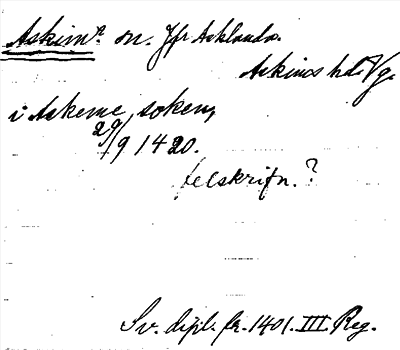 Askims sn. Jfr Asklanda.
Askims hd. Vg.
i Askeme soken,
29/9 1420.
felskrifn.?
Sv. dipl. fr. 1401. III Reg.